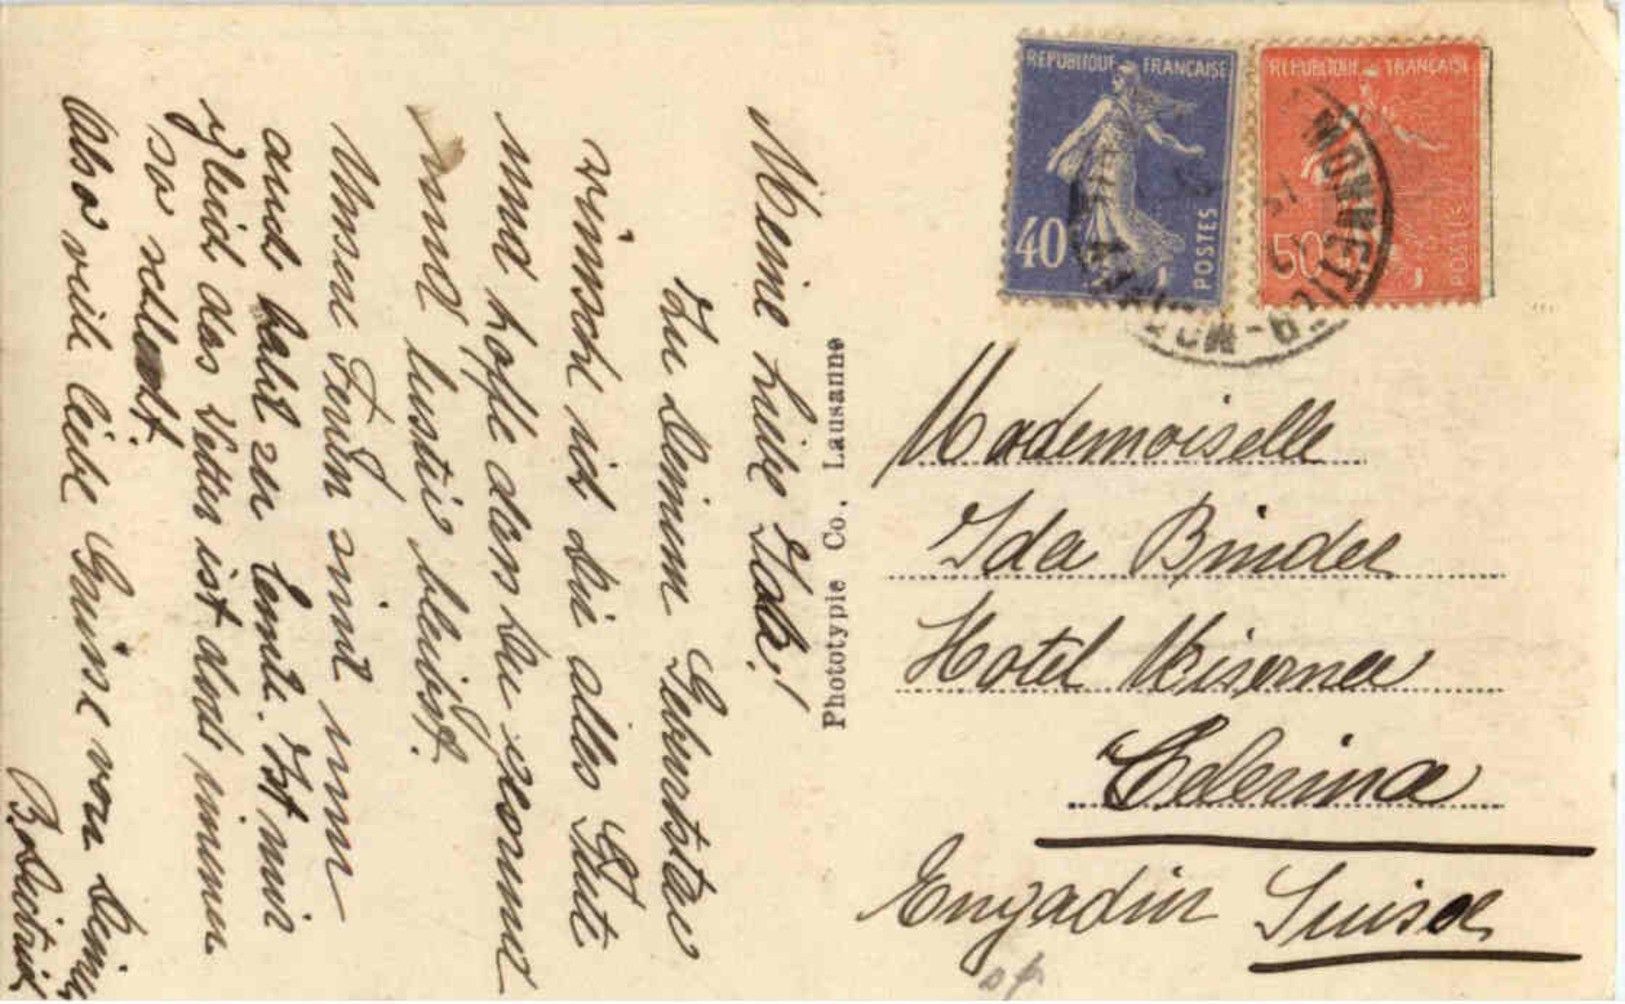 Meine liebe Ida!
Zu Deinem Geburtstag
wünsch ich dir alles Gute
und hoffe dass Du gesund
und lustig bleibst.
Unsere Ferien sind nun
auch bald zu Ende. Ist mir
gleich das Wetter ist doch immer
so schlecht.
Also viele liebe Grüsse von Deiner
Phototypie Co., Lausanne
REPUBLIQUE FRANÇAISE
40
POSTES
REPUBLIQUE FRANÇAISE
50
POSTES
MONNETIER-MORNEX
Mademoiselle
Ida Binder
Hotel
Celerina
Engadin Suisse